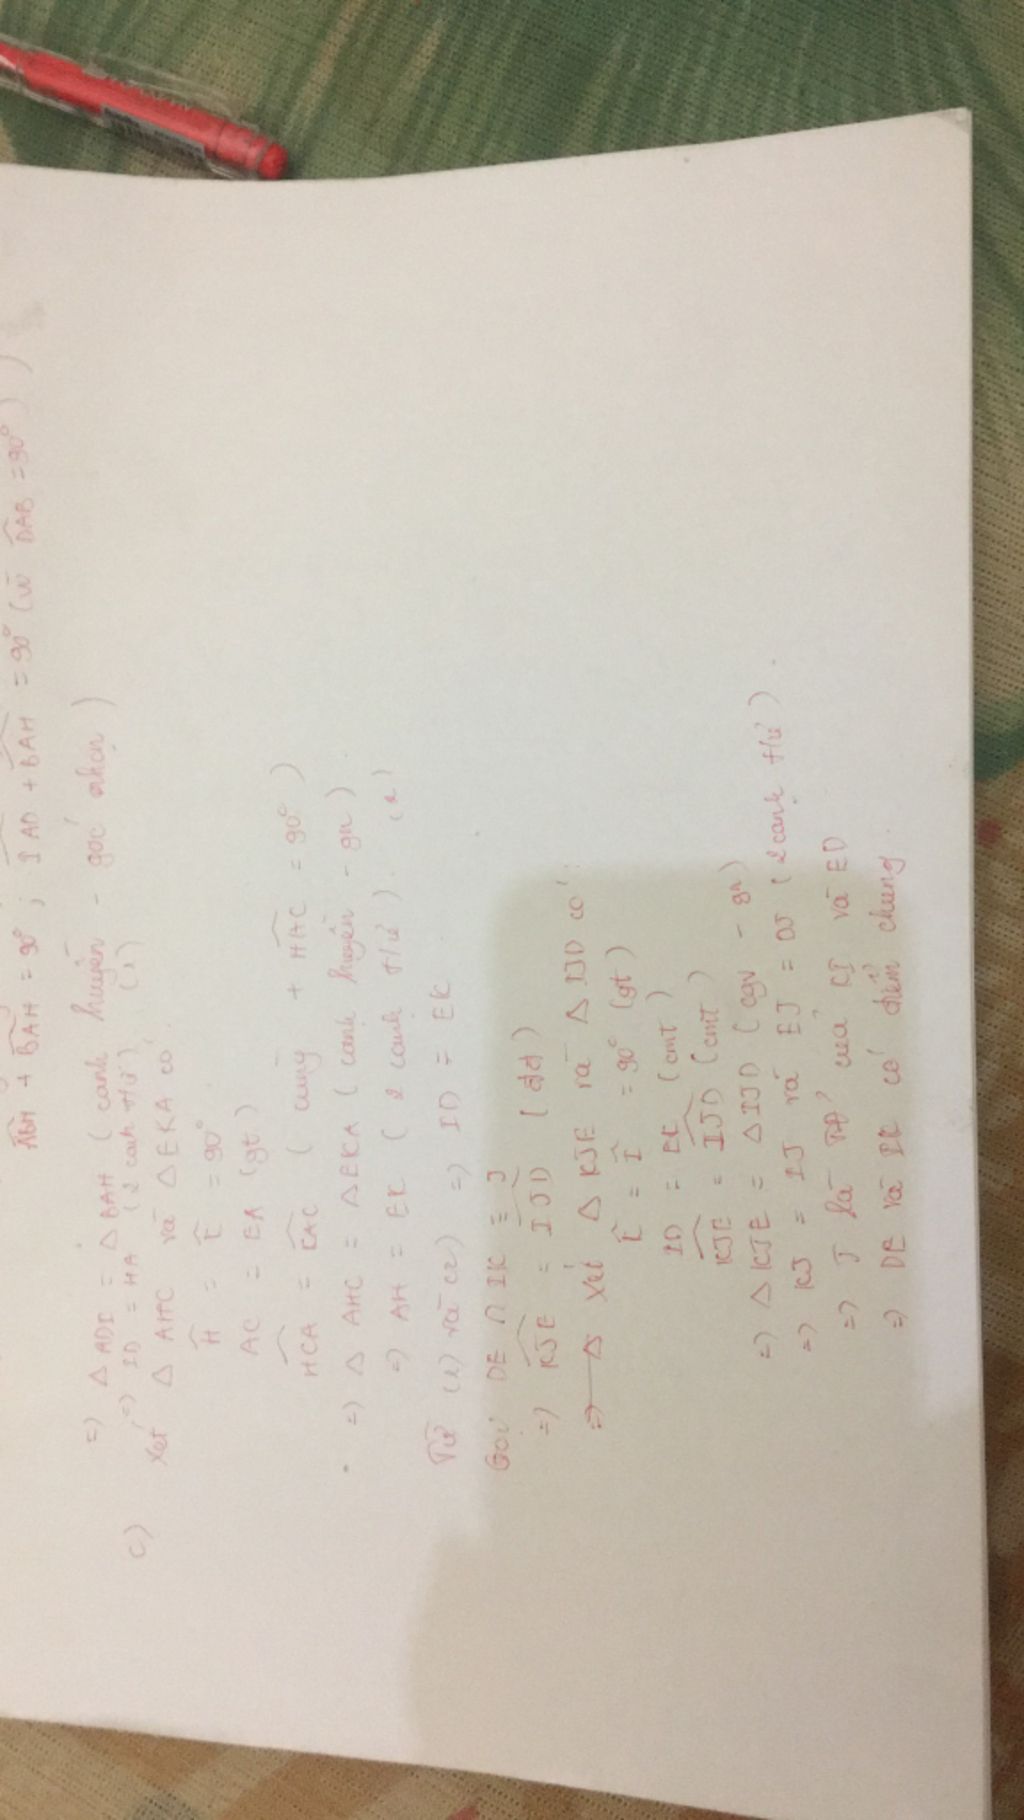 ABH + BAH = 90° ; IAD + BAH = 90° (vì DAB = 90°)
=) Δ ADI = Δ BAH (cạnh huyền - góc nhọn)
=) ID = HA (2 cạnh t/ứ) (1)
c) Xét Δ AHC và Δ EKA có
H = K = 90°
AC = EA (gt)
HCA = KAC (cùng + HAC = 90°)
=) Δ AHC = Δ EKA (cạnh huyền - gn)
=) AH = EK (2 cạnh t/ứ) (2)
Từ (1) và (2) =) ID = EK
Gọi DE ∩ IK = J
=) KJE = IJD (đđ)
=) Δ Xét Δ KJE và Δ IJD có :
K = I = 90° (gt)
ID = EK (cmt)
KJE = IJD (cmt)
=) Δ KJE = Δ IJD (cgv - gn)
=) KJ = IJ và EJ = DJ (2 cạnh t/ứ).
=) J là TĐ của KI và ED
=) DE và IK có điểm chung.